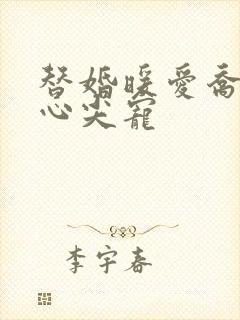 替婚暖爱乔
心尖宠
李宇春